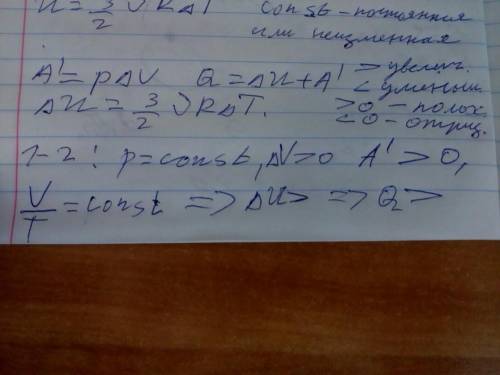 U = 3/2 νRΔT const – постоянная
или неизменная
A' = pΔV Q = ΔU + A' > увелич.
< уменьш.
ΔU = 3/2 νRΔT. >0 – полож.
<0 – отриц.
1-2: p = const, ΔV>0 A' > 0,
V/T = const => ΔU> => Q>